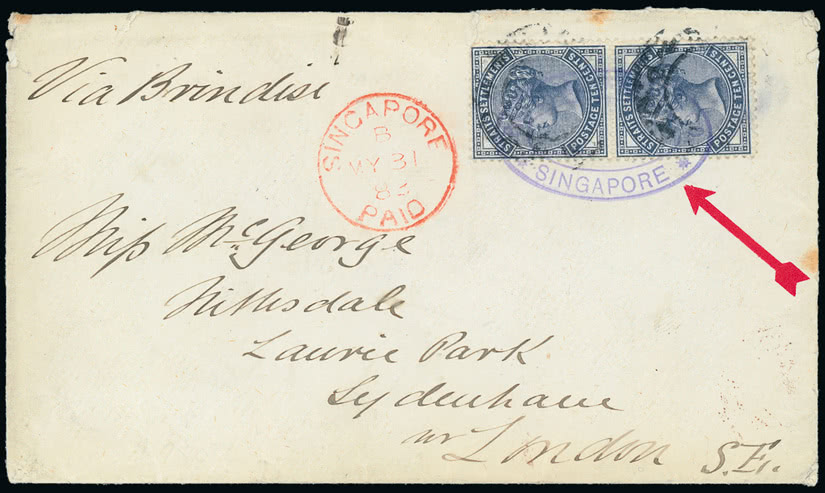 Via Brindisi
STRAITS SETTLEMENTS
POSTAGE TEN CENTS
STRAITS SETTLEMENTS
POSTAGE TEN CENTS
SINGAPORE
B
MY 31
83
PAID
* SINGAPORE *
Miss McGeorge
Nithsdale
Laurie Park
Sydenham
nr London S.E.